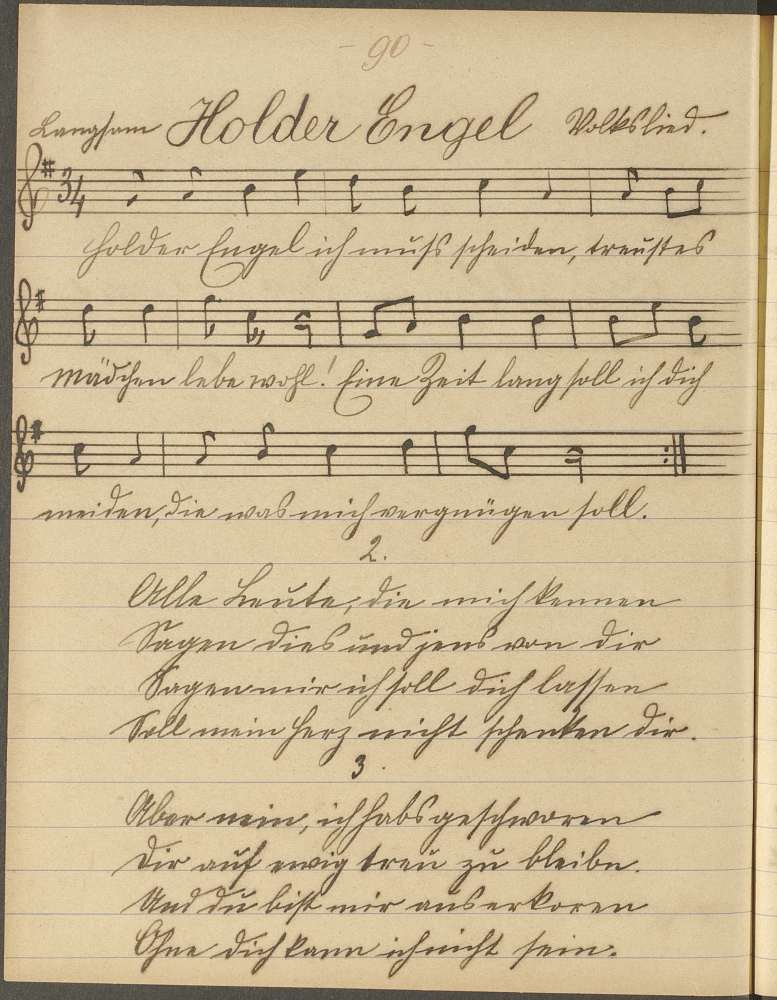 - 90 -
Langsam Holder Engel Volkslied.
3/4
Holder Engel ich muß scheiden, treustes
Mädchen lebe wohl! Eine Zeit lang soll ich dich
meiden, die was mich vergnügen soll.
2.
Alle Leute, die mich kennen
Sagen dies und jens von dir
Sagen mir ich soll dich lassen
Soll mein Herz nicht schenken dir.
3.
Aber nein, ich habs geschworen
Dir auf ewig treu zu bleibn.
Und du bist mir auserkoren
Ohne dich kann ich nicht sein.